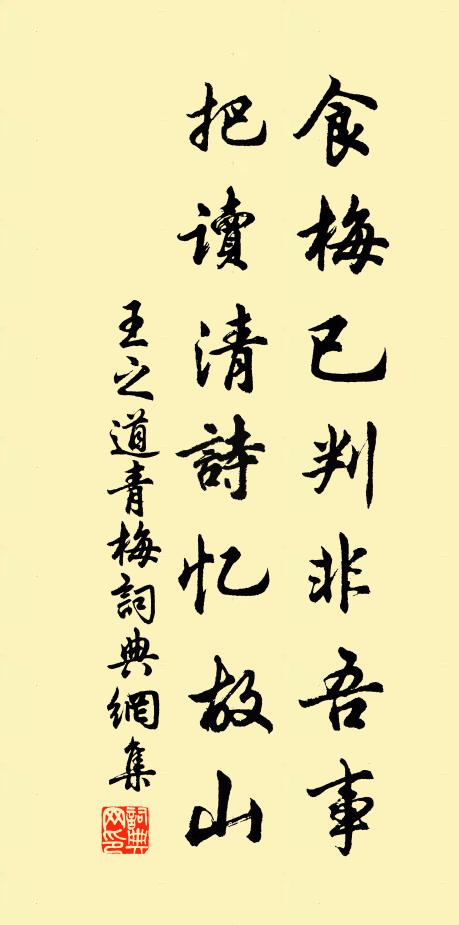 食梅已判非吾事
把讀清詩忆故山
王之道青梅詞典網集
詞典网印